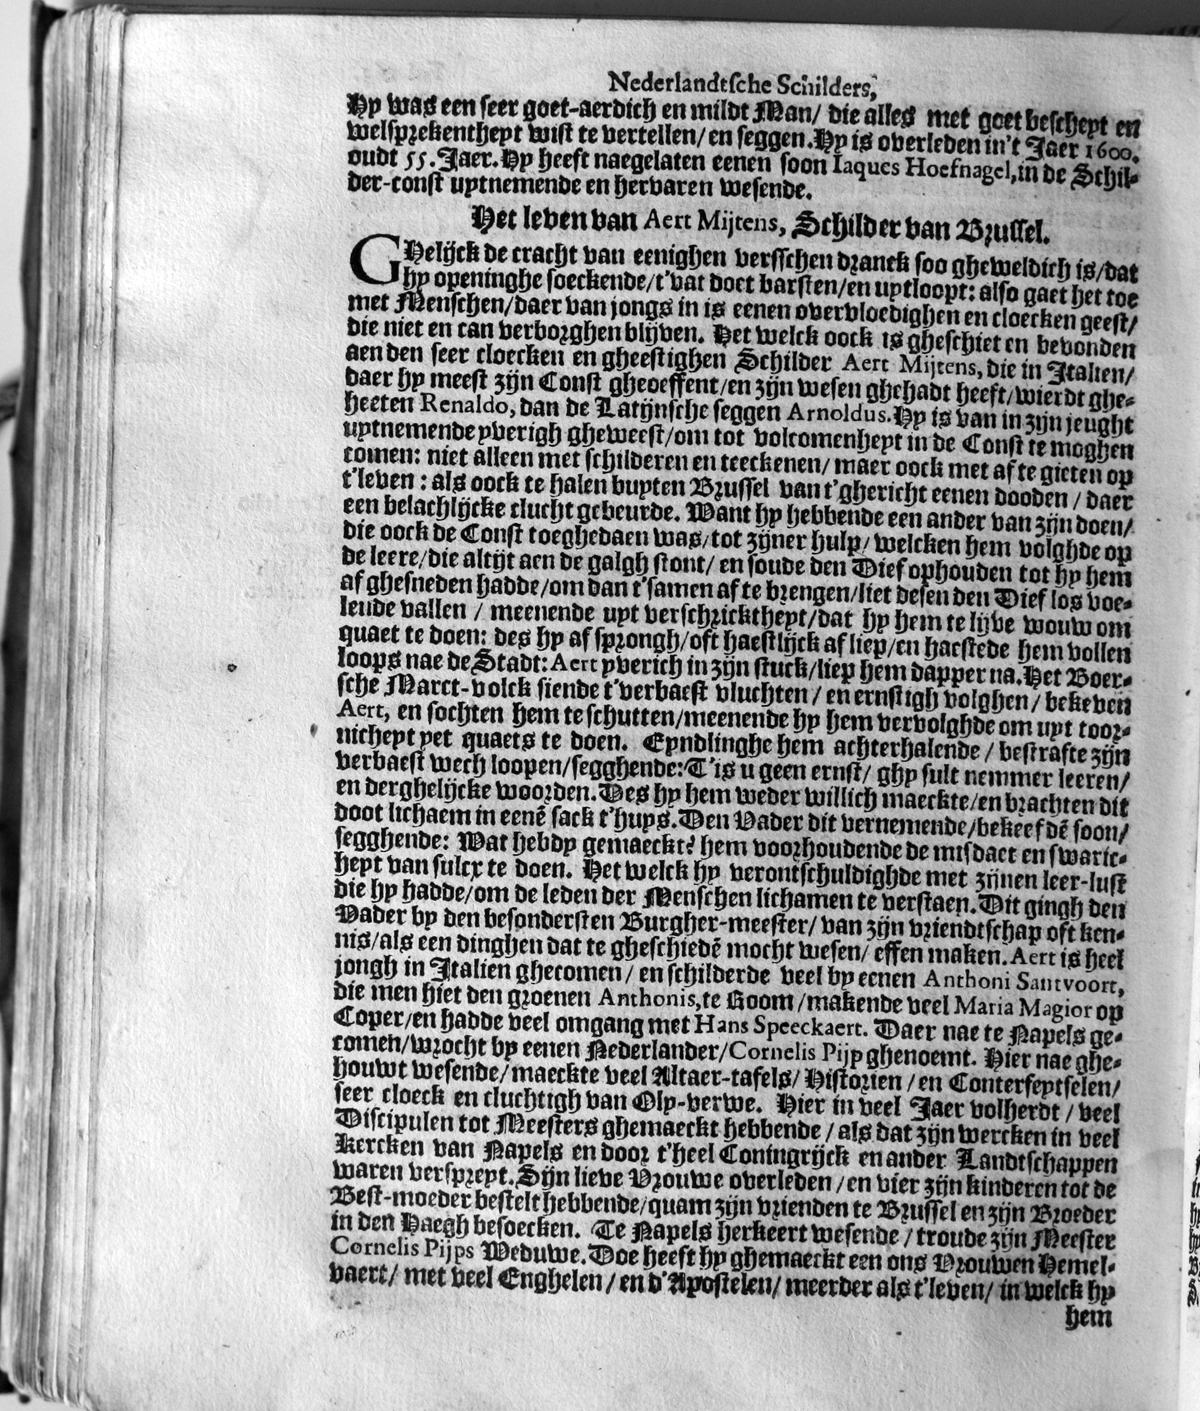 Nederlandtsche Schilders,
Hy was een seer goet-aerdich en mildt Man/ die alles met goet bescheyt en
welsprekentheyt wist te vertellen/ en seggen. Hy is overleden in't Jaer 1600.
oudt 55. Jaer. Hy heeft naegelaten eenen soon Iaques Hoefnagel, in de Schil-
der-const uytnemende en hervaren wesende.
Het leven van Aert Mijtens, Schilder van Brussel.
GHelijck de cracht van eenighen versschen dranck soo gheweldich is/ dat
hy openinghe soeckende/ t'vat doet barsten/ en uytloopt: also gaet het toe
met Menschen/ daer van jongs in is eenen overvloedighen en cloecken geest/
die niet en can verborghen blijven. Het welck oock is gheschiet en bevonden
aen den seer cloecken en gheestighen Schilder Aert Mijtens, die in Italien/
daer hy meest zijn Const gheoeffent/ en zijn wesen ghehadt heeft/ wierdt ghe-
heeten Renaldo, dan de Latijnsche seggen Arnoldus. Hy is van in zijn jeught
uytnemende yverigh gheweest/ om tot volcomenheyt in de Const te moghen
comen: niet alleen met schilderen en teeckenen/ maer oock met af te gieten op
t'leven: als oock te halen buyten Brussel van t'ghericht eenen dooden/ daer
een belachlijcke clucht gebeurde. Want hy hebbende een ander van zijn doen/
die oock de Const toeghedaen was/ tot zijner hulp/ welcken hem volghde op
de leere/ die altijt aen de galgh stont/ en soude den Dief ophouden tot hy hem
af ghesneden hadde/ om dan t'samen af te brengen/ liet desen den Dief los voe-
lende vallen/ meenende uyt verschricktheyt/ dat hy hem te lijve wouw om
quaet te doen: des hy af sprongh/ oft haestlijck af liep/ en haestede hem vollen
loops nae de Stadt: Aert yverich in zijn stuck/ liep hem dapper na. Het Boer-
sche Marct-volck siende t'verbaest vluchten/ en ernstigh volghen/ bekeven
Aert, en sochten hem te schutten/ meenende hy hem vervolghde om uyt toor-
nicheyt yet quaets te doen. Eyndlinghe hem achterhalende/ bestrafte zijn
verbaest wech loopen/ segghende: T'is u geen ernst/ ghy sult nemmer leeren/
en derghelijcke woorden. Des hy hem weder willich maeckte/ en brachten dit
doot lichaem in eenē sack t'huys. Den Vader dit vernemende/ bekeef dē soon/
segghende: Wat hebdy gemaeckt? hem voorhoudende de misdaet en swaric-
heyt van sulcx te doen. Het welck hy verontschuldighde met zijnen leer-lust
die hy hadde/ om de leden der Menschen lichamen te verstaen. Dit gingh den
Vader by den besondersten Burgher-meester/ van zijn vriendtschap oft ken-
nis/ als een dinghen dat te gheschiedē mocht wesen/ effen maken. Aert is heel
jongh in Italien ghecomen/ en schilderde veel by eenen Anthoni Santvoort,
die men hiet den groenen Anthonis, te Room/ makende veel Maria Magior op
Coper/ en hadde veel omgang met Hans Speeckaert. Daer nae te Napels ge-
comen/ wrocht by eenen Nederlander/ Cornelis Pijp ghenoemt. Hier nae ghe-
houwt wesende/ maeckte veel Altaer-tafels/ Historien/ en Conterfeytselen/
seer cloeck en cluchtigh van Oly-verwe. Hier in veel Jaer volherdt/ veel
Discipulen tot Meesters ghemaeckt hebbende/ als dat zijn wercken in veel
Kercken van Napels en door t'heel Coningrijck en ander Landtschappen
waren verspreyt. Sijn lieve Vrouwe overleden/ en vier zijn kinderen tot de
Best-moeder bestelt hebbende/ quam zijn vrienden te Brussel en zijn Broeder
in den Haegh besoecken. Te Napels herkeert wesende/ troude zijn Meester
Cornelis Pijps Weduwe. Doe heeft hy ghemaeckt een ons Vrouwen Hemel-
vaert/ met veel Enghelen/ en d'Apostelen/ meerder als t'leven/ in welck hy
hem